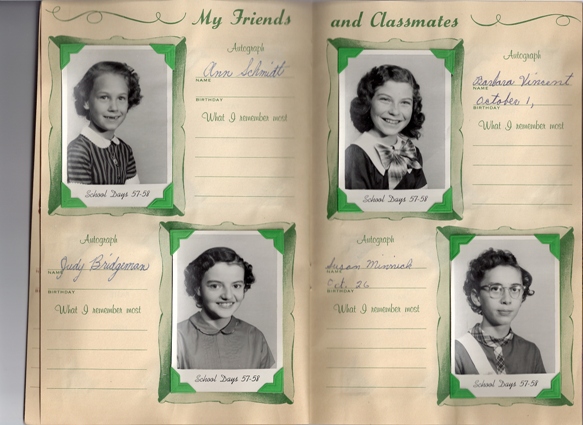 My Friends and Classmates
Autograph
Ann Schmidt
NAME
BIRTHDAY
What I remember most
School Days 57-58
Autograph
Barbara Vincent
NAME
October 1,
BIRTHDAY
What I remember most
School Days 57-58
Autograph
Judy Bridgeman
NAME
BIRTHDAY
What I remember most
School Days 57-58
Autograph
Susan Minnich
NAME
Oct. 26
BIRTHDAY
What I remember most
School Days 57-58